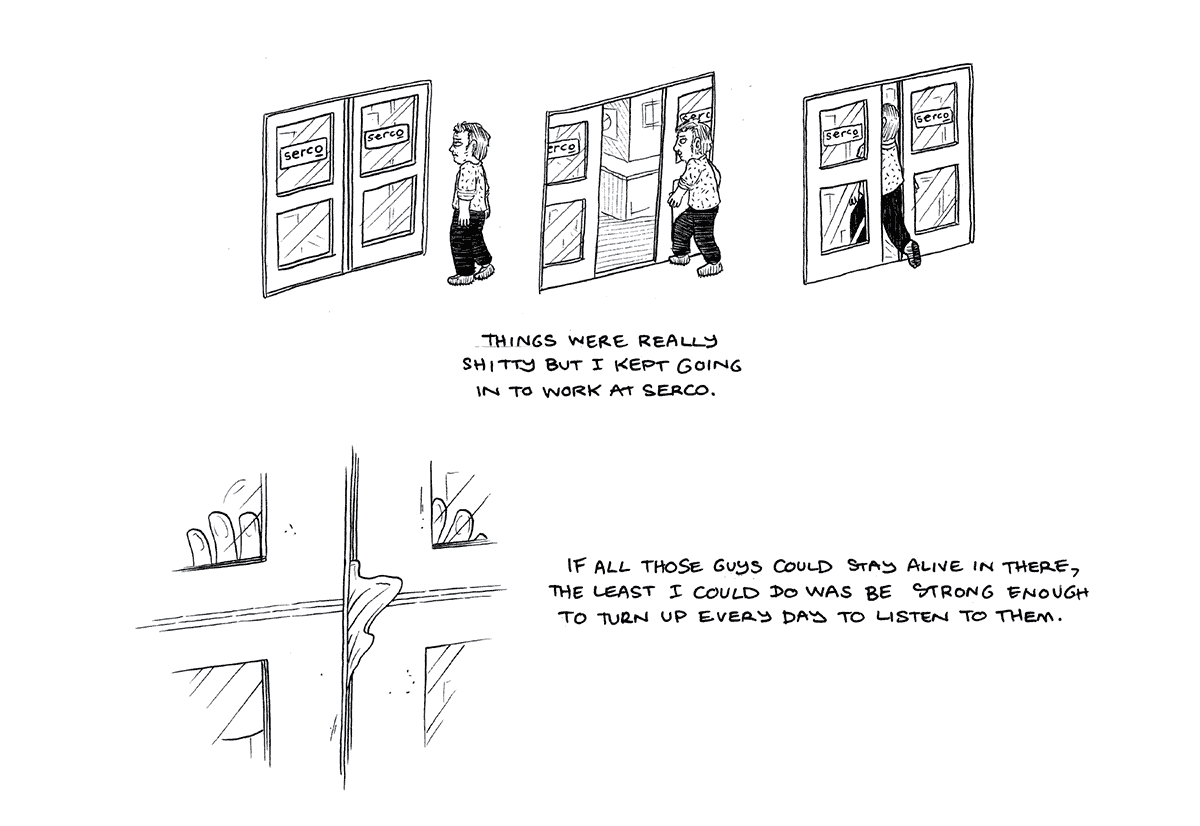 serco
serco
erco
serc
serco
serco
THINGS WERE REALLY
SHITTY BUT I KEPT GOING
IN TO WORK AT SERCO.
IF ALL THOSE GUYS COULD STAY ALIVE IN THERE,
THE LEAST I COULD DO WAS BE STRONG ENOUGH
TO TURN UP EVERY DAY TO LISTEN TO THEM.